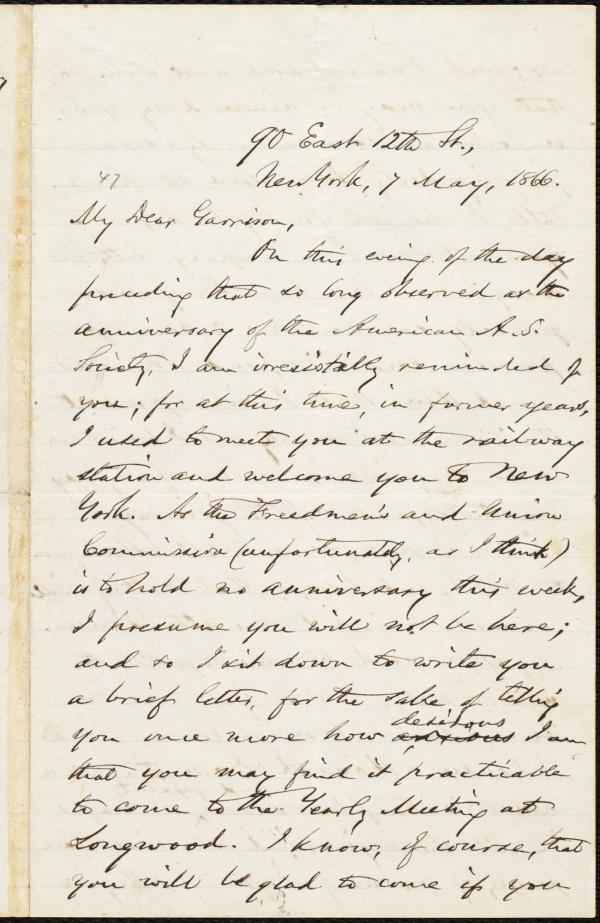 90 East 12th St.,
New York, 7 May, 1866.
47
My Dear Garrison,
On this evening of the day
preceding that so long observed as the
anniversary of the American A. S.
Society, I am irresistibly reminded of
you; for at this time, in former years,
I used to meet you at the railway
station and welcome you to New
York. As the Freedmen's and Union
Commission (unfortunately, as I think)
is to hold no anniversary this week,
I presume you will not be here;
and so I sit down to write you
a brief letter, for the sake of telling
desirous
you once more how anxious I am
that you may find it practicable
to come to the Yearly Meeting at
Longwood. I know, of course, that
you will be glad to come if you